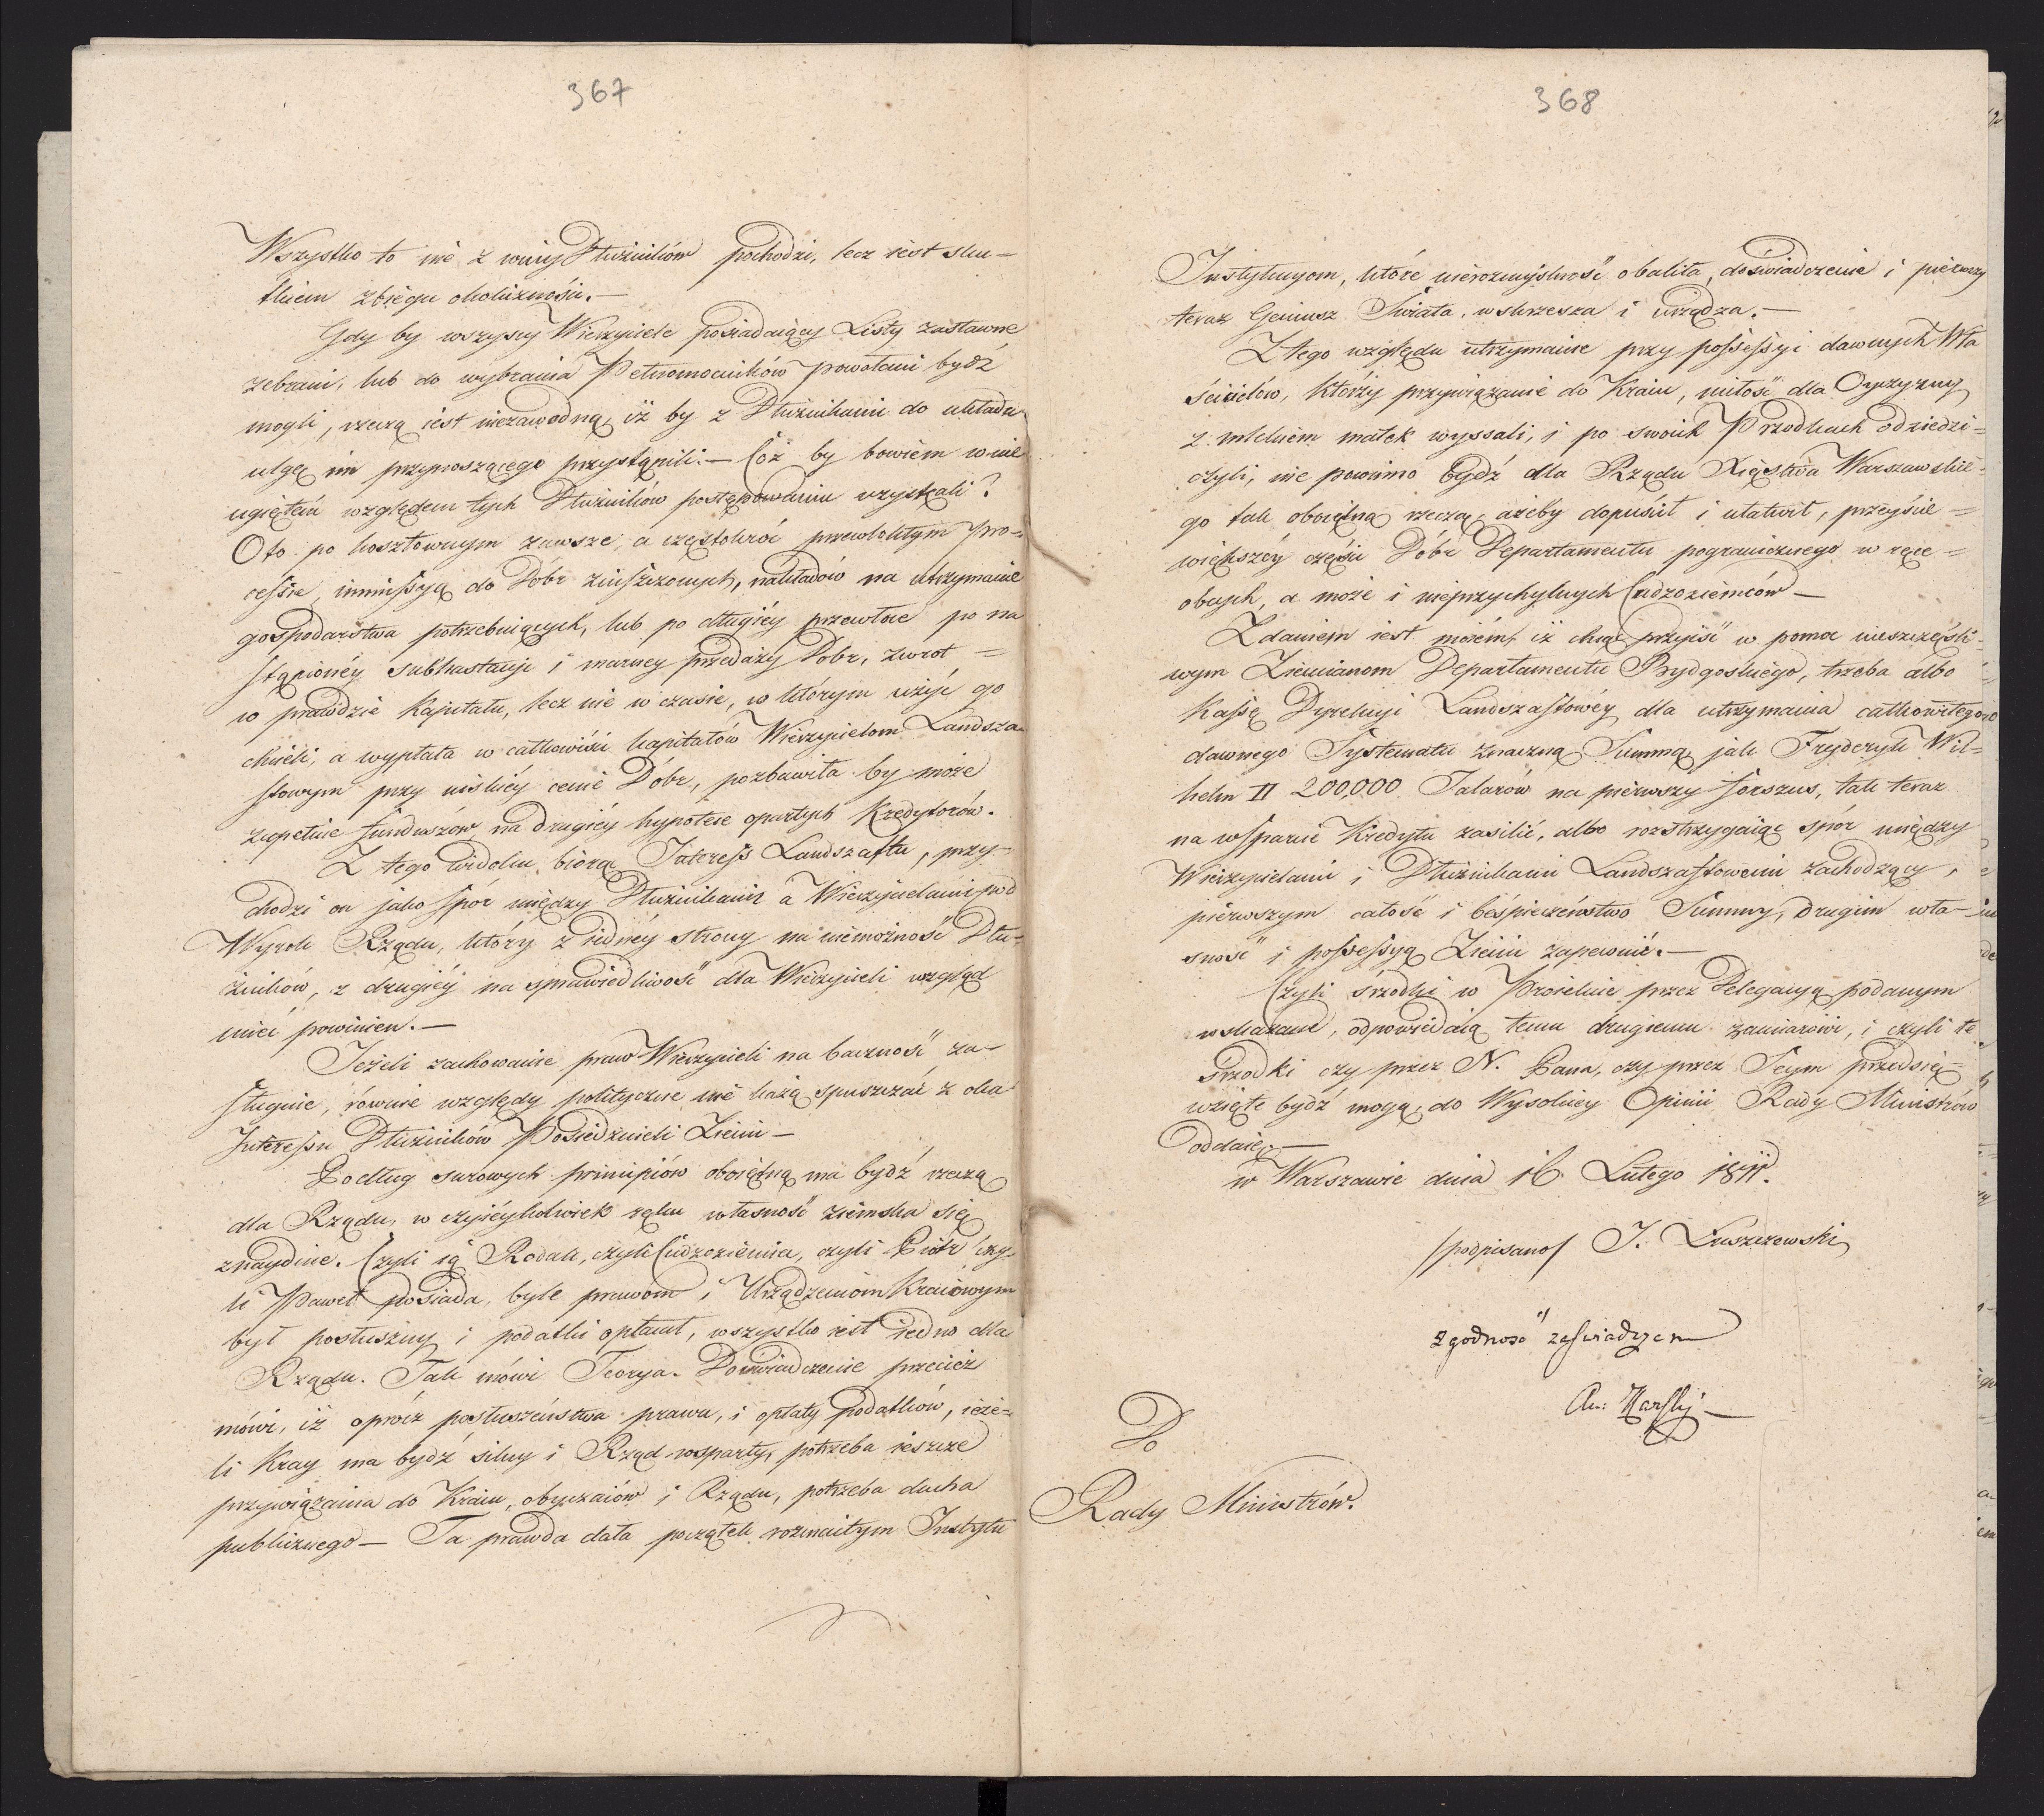 367
Wszystko to nie z winy Dłużników pochodzi, lecz iest sku-
tkiem zbiegu okoliczności.—
Gdy by wszyscy Wierzyciele posiadaiący Listy zastawne
zebrani, lub do wybrania Pełnomocników powołani bydź
mogli, rzeczą iest niezawodną, iż by z Dłużnikami do układu
ulgę im przynoszącego przystąpili.— Cóż by bowiem w nie
ugiętém względem tych Dłużników postępowaniu uzyskali?
Oto po kosztownym zawsze, a częstokróć przewlokłym pro-
cessie, immissyą do Dobr zniszczonych, nakładów na utrzymanie
gospodarstwa potrzebuiących, lub po długiéy przewłoce po na
stąpionéy subhastacyi i marney przedaży Dobr, zwrot =
w prawdzie Kapitału, lecz nie w czasie, w którym użyć go
chcieli, a wypłata w całkowiści kapitałów Wierzycielom Landsza-
ftowym przy niskiéy cenie Dóbr, pozbawiła by może
zupełnie funduszów na drugiéy hypotece opartych Kredytorów.
Z tego widoku biorąc Interess Landszaftu, przy-
chodzi on jako spór między Dłużnikami a Wierzycielami pod
Wyrok Rządu, który z iednéy strony na niemożność Dłu-
żników, z drugiéy na sprawiedliwość dla Wierzycieli wzgląd
mieć powinien.—
Jeżeli zachowanie praw Wierzycieli na baczność za-
sługuie, równie względy polityczne nie każą spuszczać z oka
Interessu Dłużników Posiedzicieli Ziemi—
Podług surowych principiów obojętną ma bydź rzeczą
dla Rządu, w czyiéykolwiek ręku własność ziemska się
znayduie. Czyli ią Rodak, czyli Cudzoziemiec, czyli Piotr czy-
li Paweł posiada, byle prawom i Urządzeniom Kraiowym
był posłuszny i podatki opłacał, wszystko iest iedno dla
Rządu. Tak mówi Teorya. Doświadczenie przecież
mówi, iż oprócz posłuszeństwa prawu, i opłaty podatków, ieże-
li Kray ma bydź silny i Rząd wsparty, potrzeba ieszcze
przywiązania do Kraiu, obyczaiów i Rządu, potrzeba ducha
publicznego— Ta prawda dała początek rozmaitym Instytu
368
Instytucyom, które nierozmyślność obaliła, doświadczenie i pierwszy
teraz Geniusz Swiata, wskrzesza i urządza.—
Z tego względu utrzymanie przy possessyi dawnych Wła
ścicielów, którzy przywiązanie do Kraiu, miłość dla Oyczyzny
z mlekiem matek wyssali, i po swoich Przodkach odziedzi=
czyli, nie powinno bydź dla Rządu Xięstwa Warszawskie-
go tak oboiętną rzeczą, ażeby dopuścił i ułatwił, przeyście =
większéy części Dóbr Departamentu pogranicznego w ręce =
obcych, a może i nieprzychylnych Cudzoziemców—
Zdaniem iest moiém, iż chcąc przyiść w pomoc nieszczęśli-
wym Ziemianom Departamentu Bydgoskiego, trzeba albo
Kassą Dyrekcyi Landszaftowéy dla utrzymania całkowitego
dawnego Systematu znaczną Summą, jak Fryderyk Wil=
helm II 200,000 Talarów na pierwszy forszus, tak teraz
na wsparcie Kredytu zasilić, albo rozstrzygaiąc spór między
Wierzycielami i Dłużnikami Landszaftowemi zachodzący,
pierwszym całość i bespieczeństwo Summy, drugim wła-
sność i possessyą Ziemi zapewnić.—
Czyli śrzodki w Proiekcie przez Delegacyą podanym
wskazane, odpowiedaią temu drugiemu zamiarowi, i czyli te
śrzodki czy przez N. Pana, czy przez Seym przedsię-
wzięte bydź mogą, do Wysokiey Opinii Rady Ministrów
oddaię.—
w Warszawie dnia 16 Lutego 1811.
/podpisano/ J. Łuszczewski
Zgodność zaświadczam
Do
Rady Ministrów.